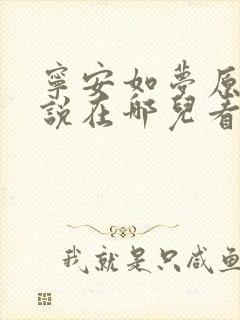 寧安如夢原
說在哪兒看
我就是只咸魚